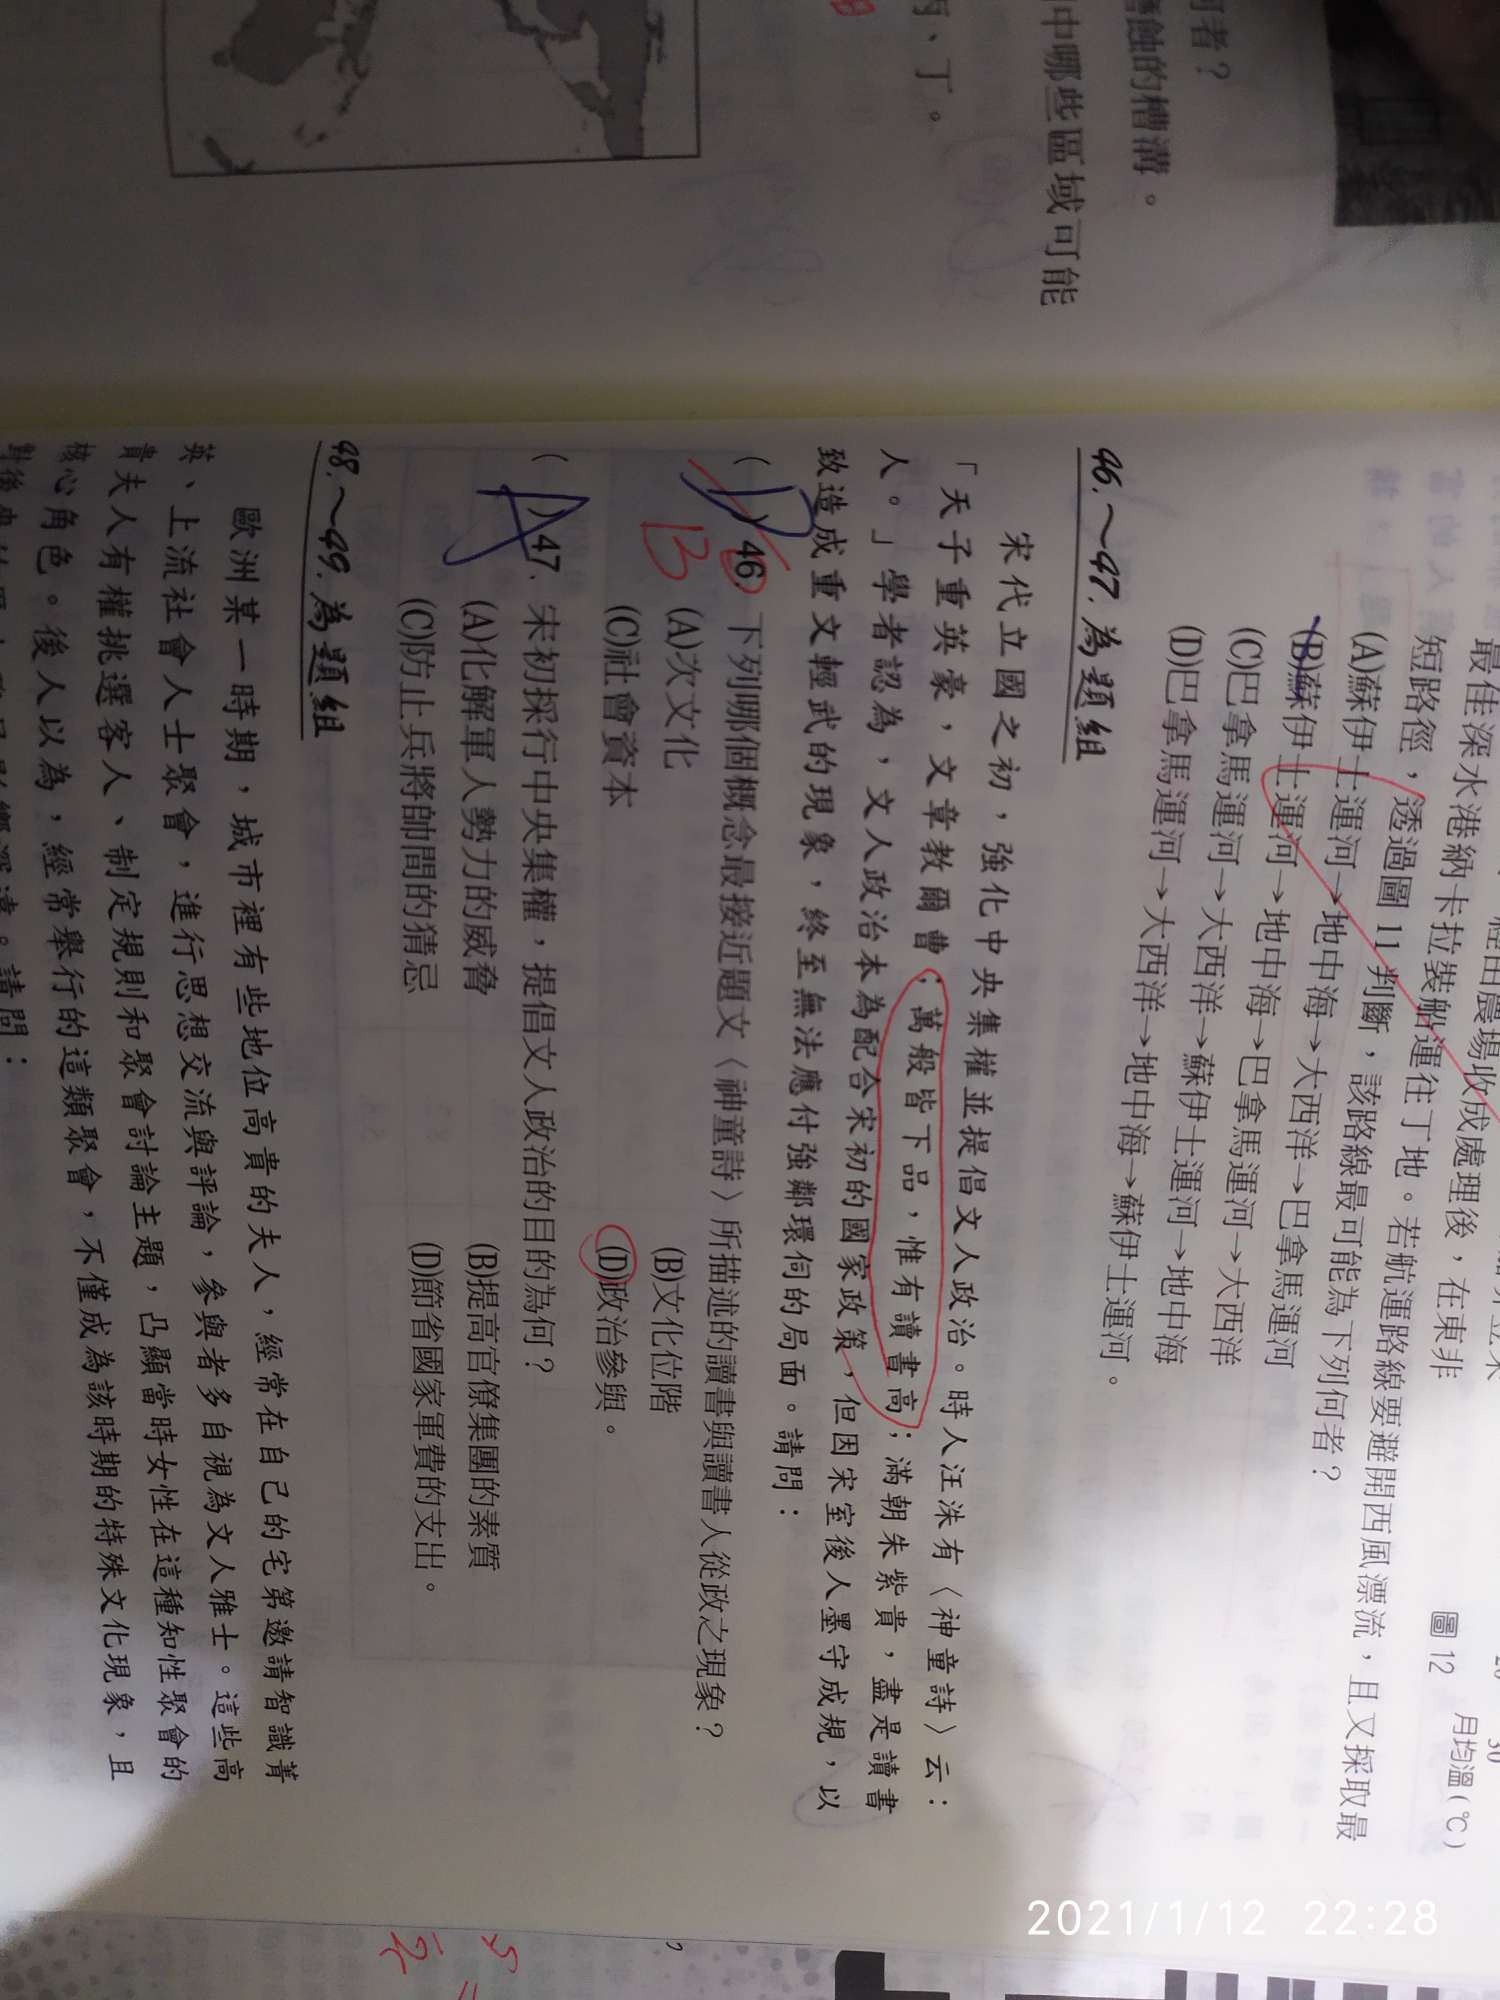 何者？
蝕的槽溝。
中哪些區域可能
丙、丁。
最佳深水港納卡拉裝船運往丁地。若航運路線要避開西風漂流，且又採取最
短路徑，透過圖 11 判斷，該路線最可能為下列何者？
(A)蘇伊士運河→地中海→大西洋→巴拿馬運河
(B)蘇伊士運河→地中海→巴拿馬運河→大西洋
(C)巴拿馬運河→大西洋→蘇伊士運河→地中海
(D)巴拿馬運河→大西洋→地中海→蘇伊士運河。
圖 12
月均溫(℃)
30
46.～47.為題組
宋代立國之初，強化中央集權並提倡文人政治。時人汪洙有〈神童詩〉云：
「天子重英豪，文章教爾曹；萬般皆下品，惟有讀書高；滿朝朱紫貴，盡是讀書
人。」學者認為，文人政治本為配合宋初的國家政策，但因宋室後人墨守成規，以
致造成重文輕武的現象，終至無法應付強鄰環伺的局面。請問：
( D )46. 下列哪個概念最接近題文〈神童詩〉所描述的讀書與讀書人從政之現象？
B
(A)次文化 (B)文化位階
(C)社會資本 (D)政治參與。
( A )47. 宋初採行中央集權，提倡文人政治的目的為何？
(A)化解軍人勢力的威脅 (B)提高官僚集團的素質
(C)防止兵將帥間的猜忌 (D)節省國家軍費的支出。
48.～49.為題組
歐洲某一時期，城市裡有些地位高貴的夫人，經常在自己的宅第邀請智識菁
英、上流社會人士聚會，進行思想交流與評論，參與者多自視為文人雅士。這些高
貴夫人有權挑選客人、制定規則和聚會討論主題，凸顯當時女性在這種知性聚會的
核心角色。後人以為，經常舉行的這類聚會，不僅成為該時期的特殊文化現象，且
請問：
2021/1/12 22:28